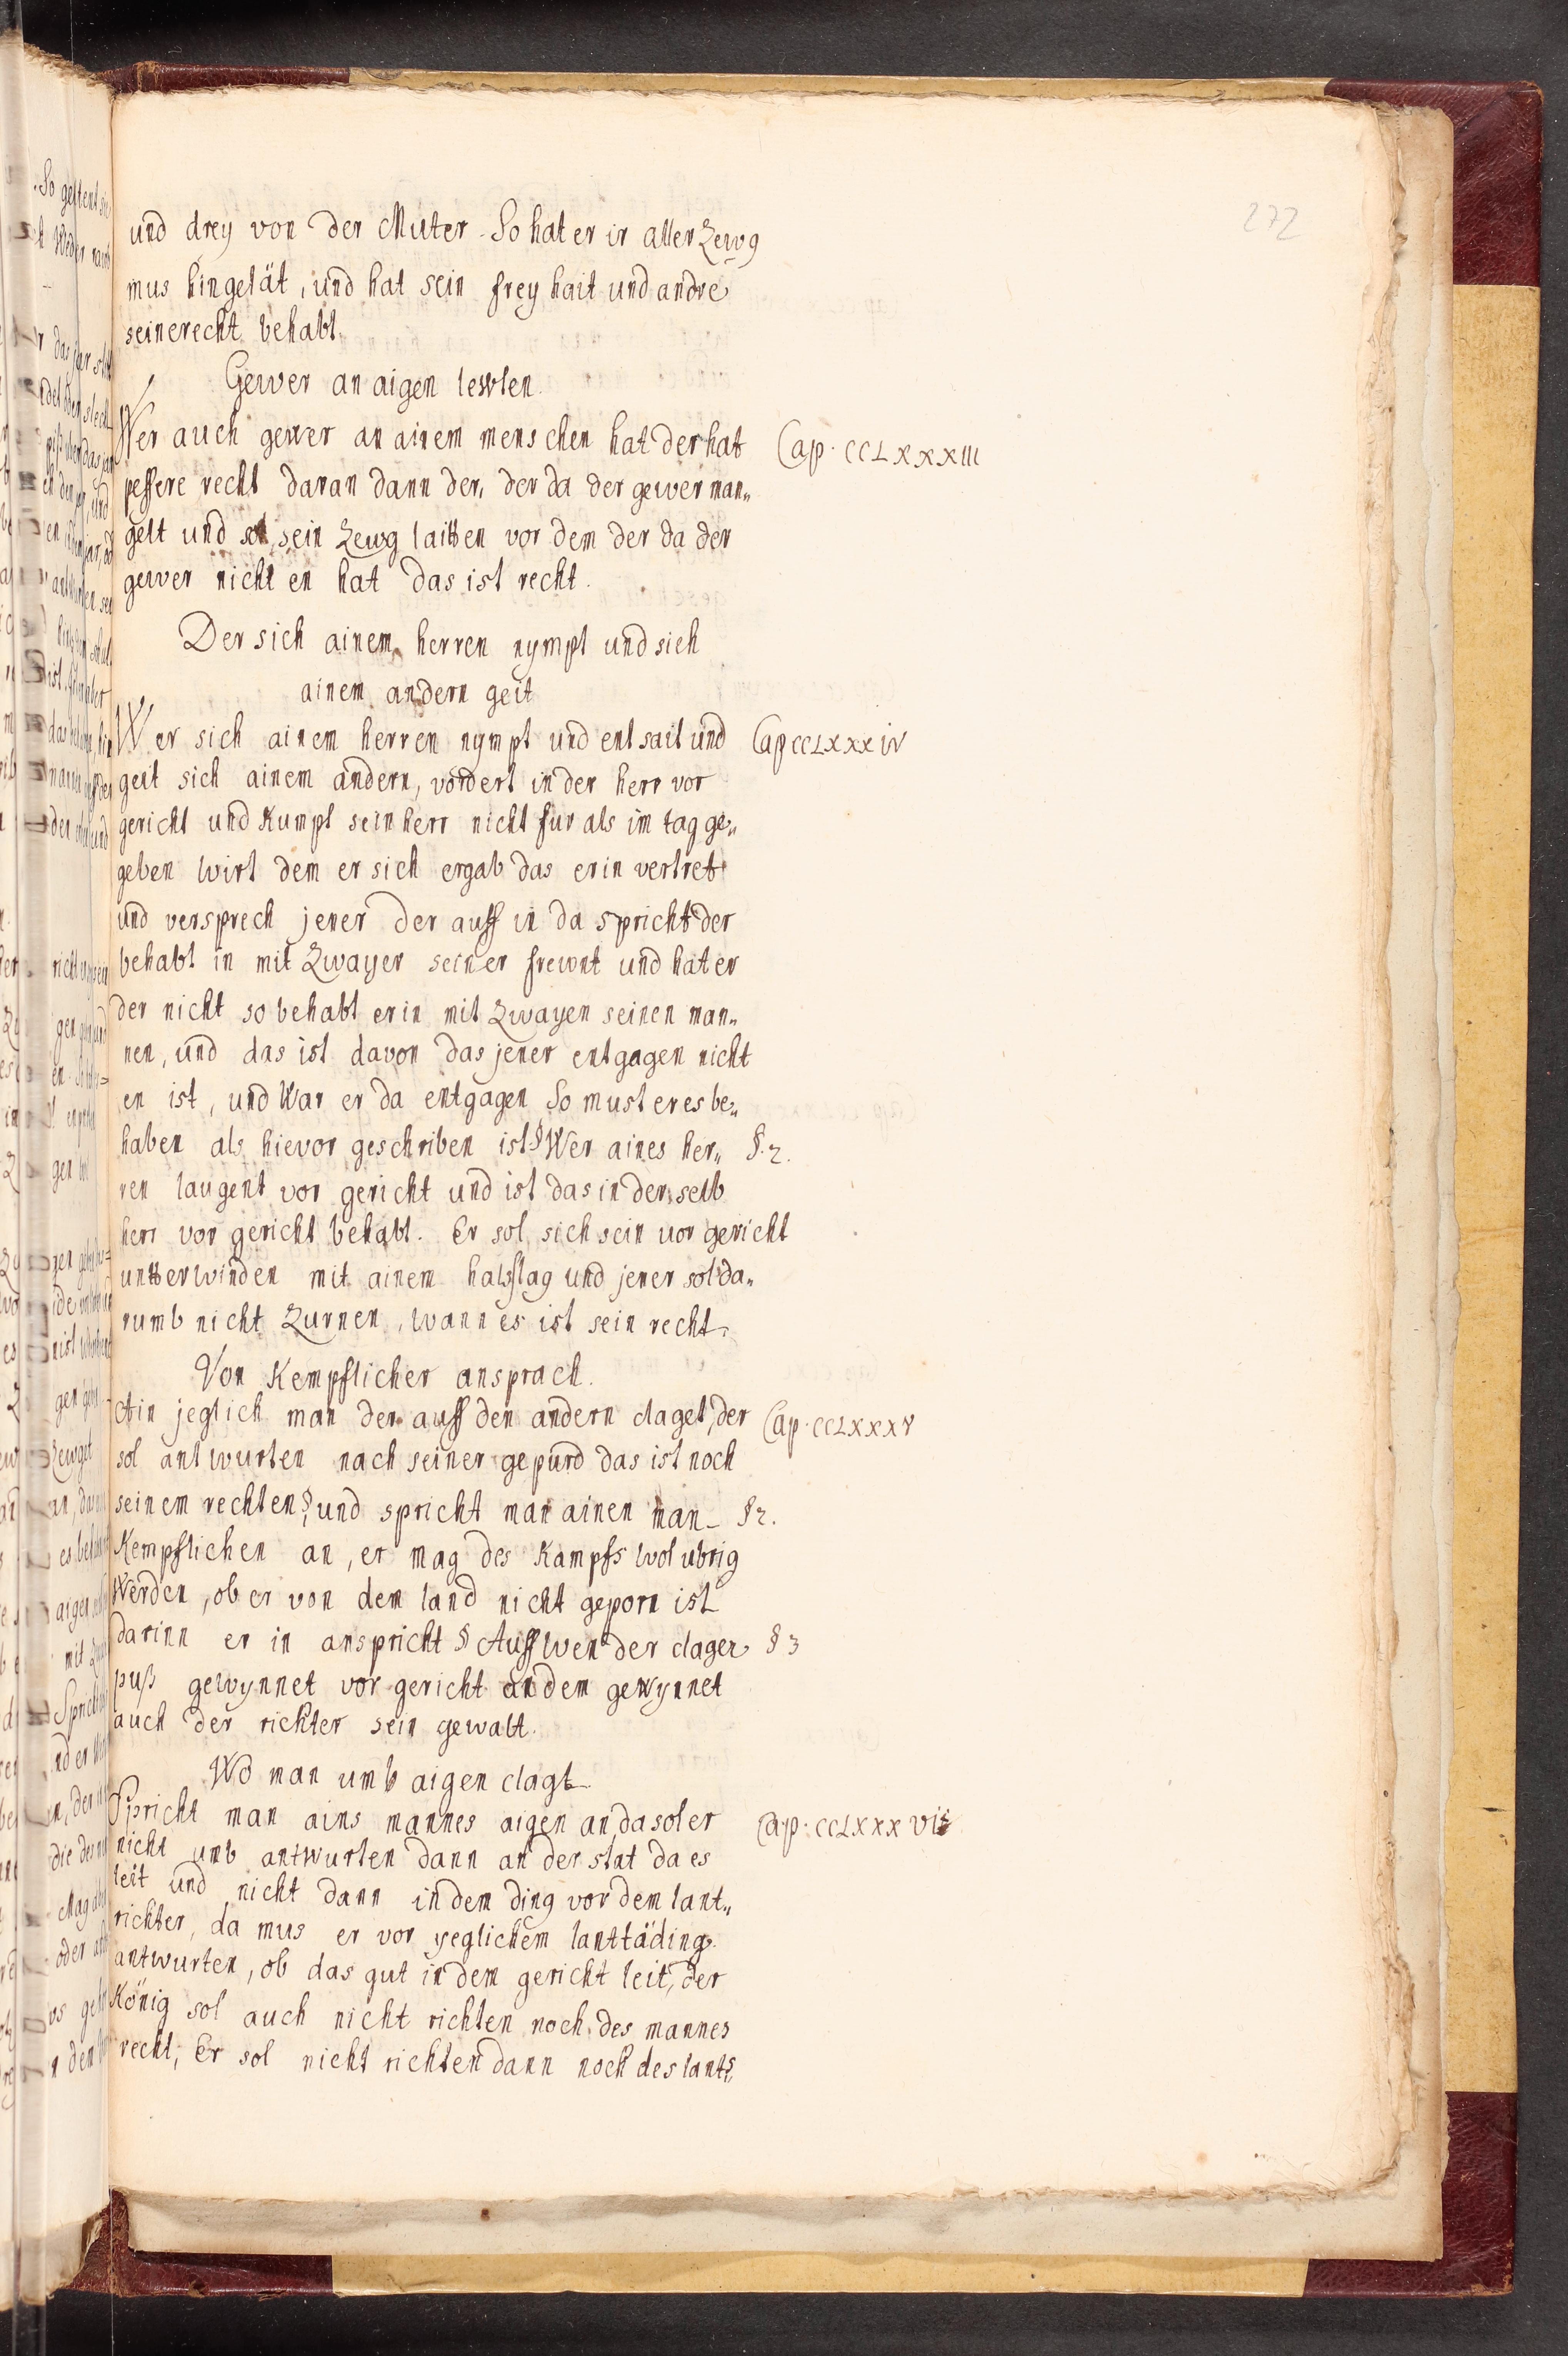 272
und drey von der Muter. So hat er ir aller Zewg
mus hingetät, und hat sein freyhait und andre
seinerecht behabt.
Gewer an aigen lewten.
Wer auch gewer an ainem menschen hat der hat
Cap. CCLXXXIII
pessere recht daran dann der, der da der gewer man„
gelt und sol sein Zewg laitten vor dem der da der
gewer nicht en hat das ist recht.
Der sich ainem herren nympt und sich
ainem andern geit
Wer sich ainem herren nympt und entsait und
Cap CCLXXXIV
geit sich ainem andern, vordert in der herr vor
gericht und Kumpt sein herr nicht fur als im tag ge„
geben wirt dem er sich ergab das er in vertret
und versprech jener der auff in da spricht der
behabt in mit Zwayer seiner frewnt und hat er
der nicht so behabt er in mit Zwayen seinen man„
nen, und das ist davon das jener entgagen nicht
en ist, und War er da entgagen So must er es be„
haben als hievor geschriben ist § Wer aines her„
§. 2.
ren laugent vor gericht und ist das in der selb
herr vor gericht behabt. Er sol sich sein vor gericht
untterwinden mit ainem halsslag und jener sol da„
rumb nicht Zurnen, wann es ist sein recht.
Von Kempflicher ansprach.
Ain jeglich man der auff den andern claget, der
Cap. CCLXXXV
sol antwurten nach seiner gepurd das ist noch
seinem rechten §, und spricht man ainen man
§ 2.
Kempflichen an, er mag des Kampfs wol ubrig
Werden, ob er von dem land nicht geporn ist
darinn er in anspricht § Auff wen der clager
§ 3
puß gewynnet vor gericht an dem gewynnet
auch der richter sein gewalt.
Wo man umb aigen clagt
Spricht man ains mannes aigen an, da sol er
Cap. CCLXXXVI
nicht umb antwurten dann an der stat da es
leit und nicht dann in dem ding vor dem lant„
richter, da mus er vor yeglichem lanttäding
antwurten, ob das gut in dem gericht leit, der
König sol auch nicht richten noch des mannes
recht, Er sol nicht richten dann noch des lants